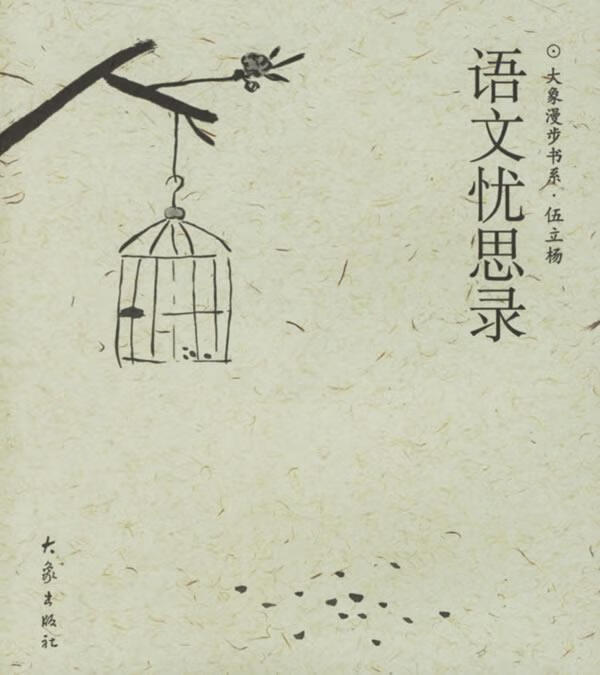 ⊙大象漫步书系·伍立杨
语文忧思录
大象出版社